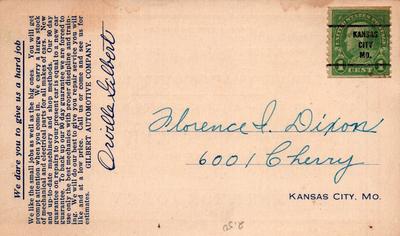 We dare you to give us a hard job
We like the small jobs as well as the big ones. You will get
prompt attention when you come in. We carry a large stock
of mechanical and electrical parts for all makes of cars. New
and up-to-date machinery and shop methods. Our 90 day
guarantee on repairs to your present car is equal to a new car
guarantee. To back up our 90 day guarantee we are forced to
use only the best mechanics with proper discipline and train-
ing. We will do our best to give you repair service you will
like and at a low price. Call us or come and see us for
estimates.
GILBERT AUTOMOTIVE COMPANY.
Orville Gilbert
KANSAS
CITY
MO.
CENT
Florence I. Dixon
6001 Cherry
KANSAS CITY, MO.